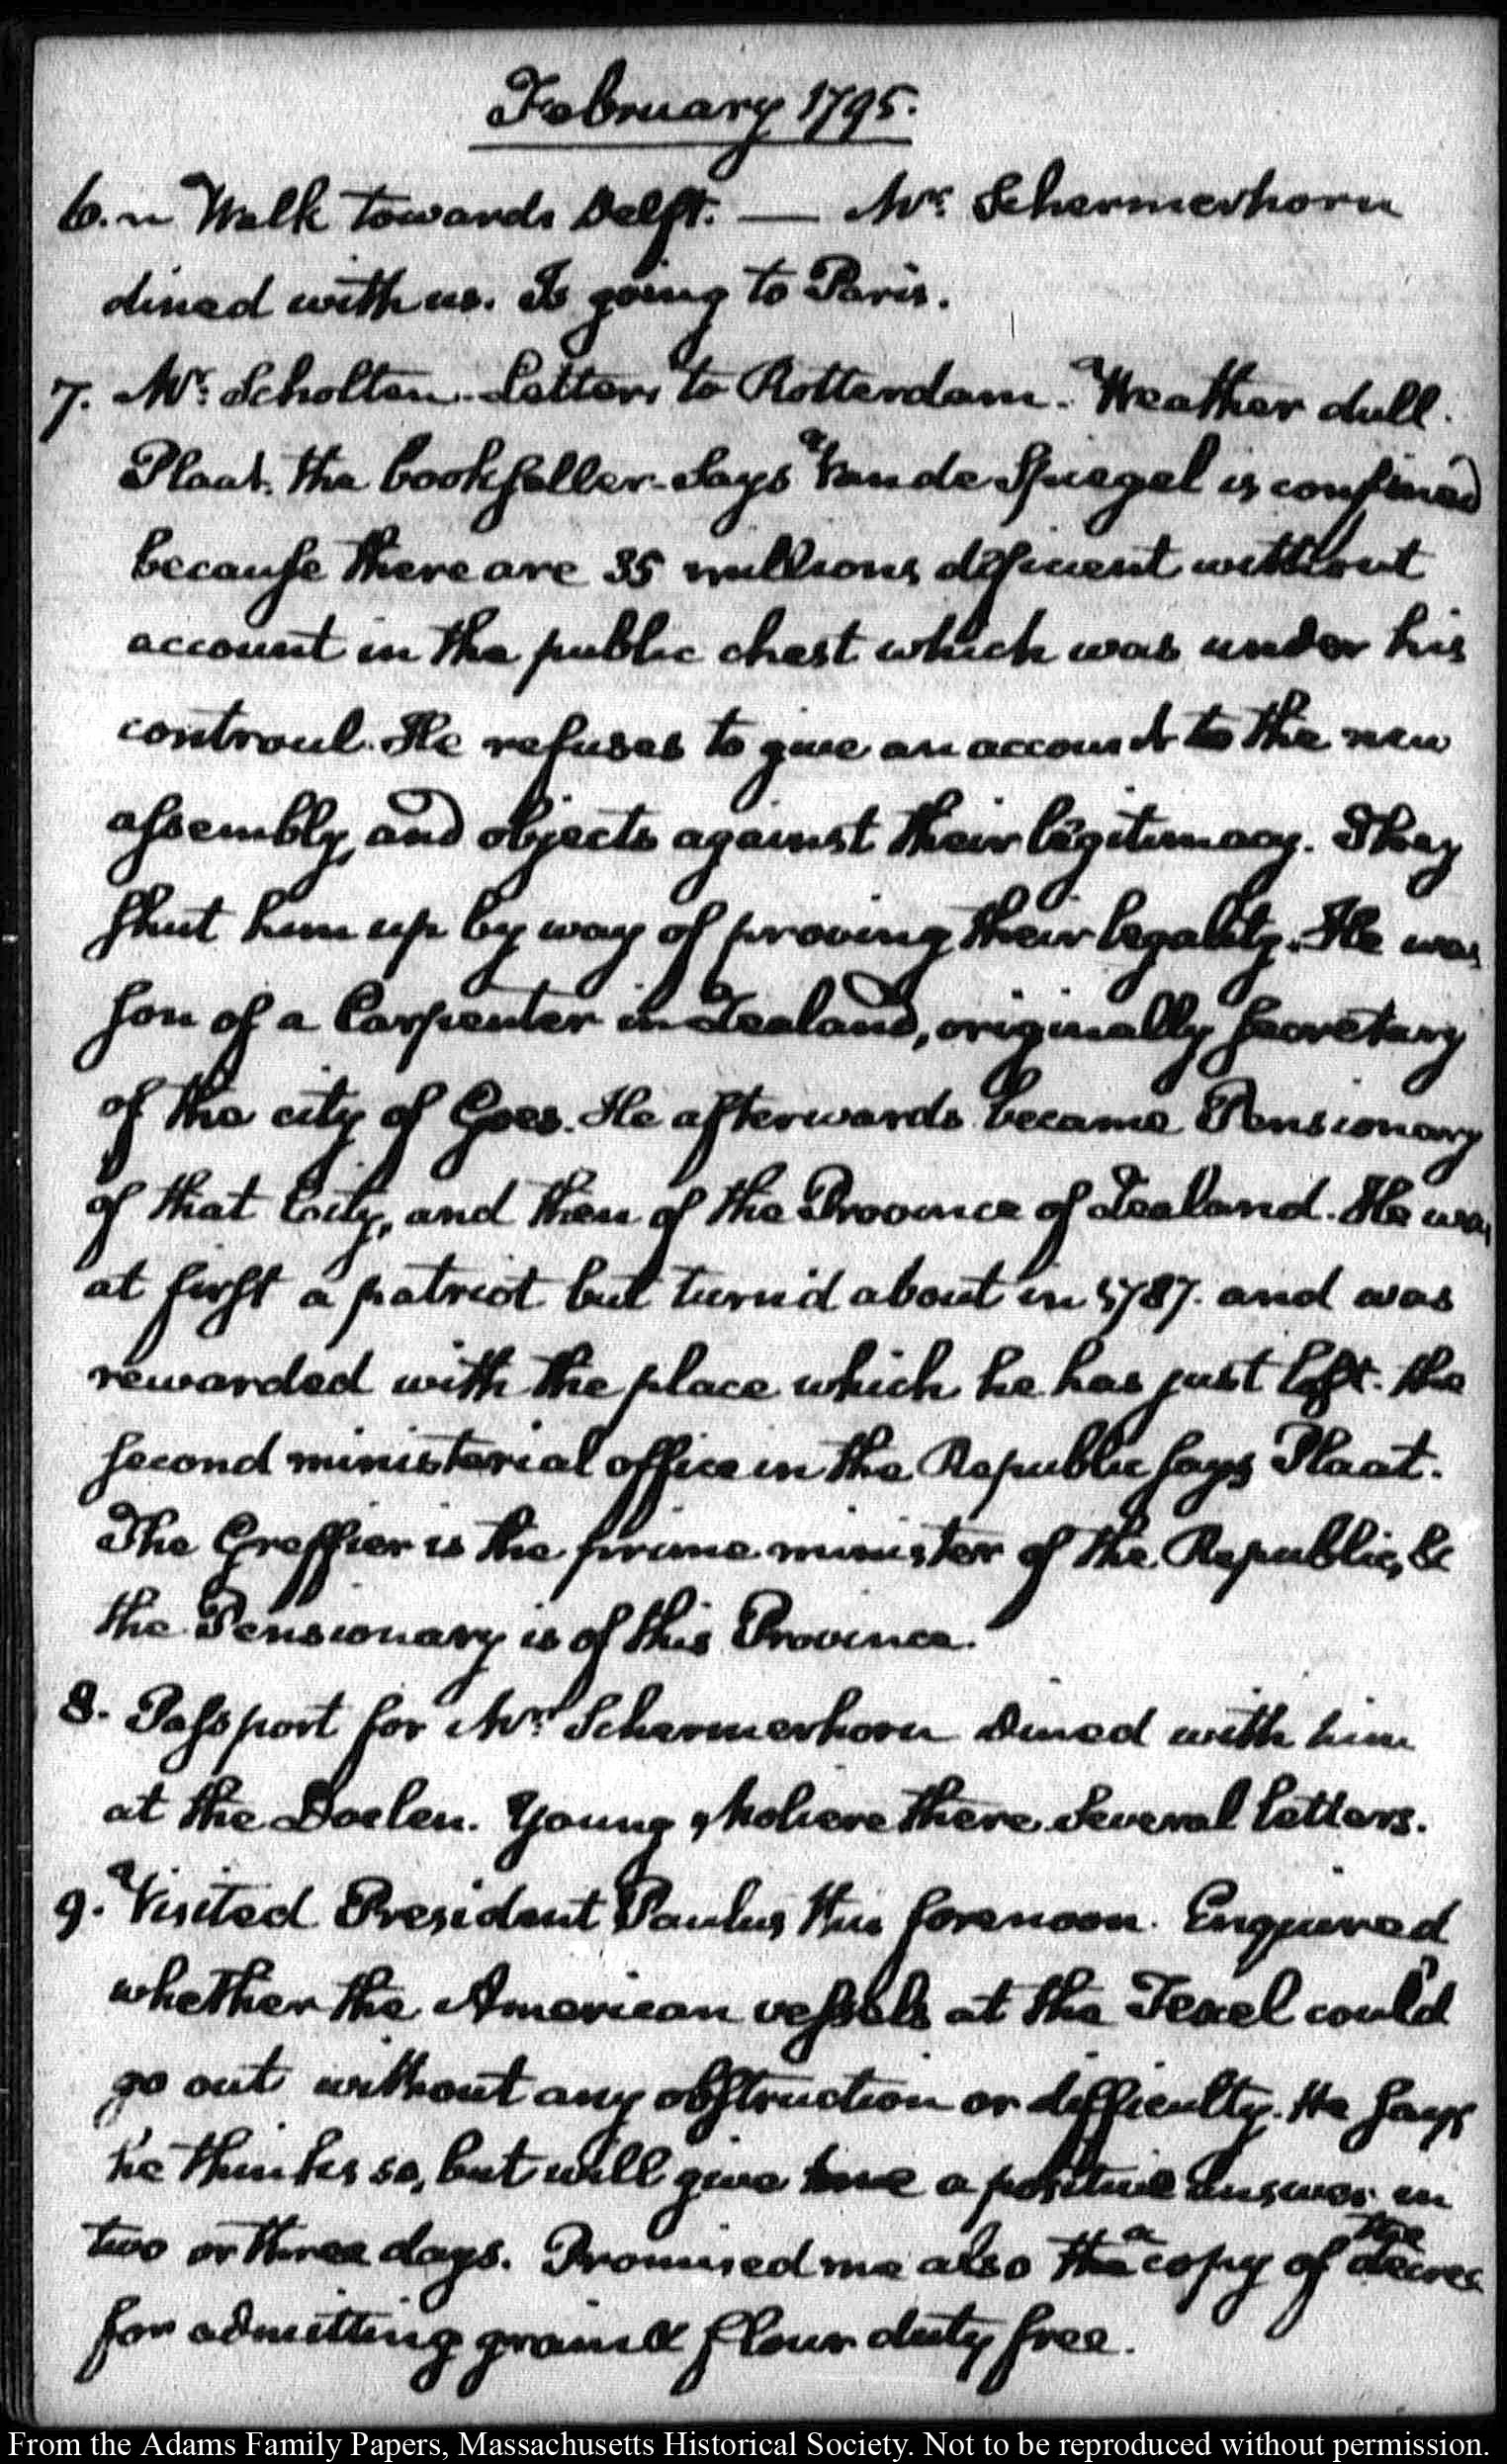 February 1795.
6. Walk towards Delft. — Mr. Schermerhorn
dined with us. Is going to Paris.
7. Mr. Scholten. Letters to Rotterdam. Weather dull.
Plaat. the bookseller. Says Van de Spiegel is confined
because there are 35 millions deficient without
account in the public chest which was under his
controul. He refuses to give an account to the new
assembly, and objects against their legitimacy. They
shut him up by way of proving their legality. He was
son of a Carpenter in Zealand, originally secretary
of the city of Goes. He afterwards became Pensionary
of that City, and then of the Province of Zealand. He was
at first a patriot but turn'd about in 1787. and was
rewarded with the place which he has just left. the
second ministerial office in the Republic says Plaat.
The Greffier is the prime minister of the Republic, &
the Pensionary is of this Province.
8. Passport for Mr. Schermerhorn Dined with him
at the Doelen. Young Moliere there. Several letters.
9. Visited President Paulus this forenoon. Enquired
whether the American vessels at the Texel could
go out without any obstruction or difficulty. He says
he thinks so, but will give me a positive answer in
two or three days. Promised me also the a copy of the decree
for admitting grain & flour duty free.
From the Adams Family Papers, Massachusetts Historical Society. Not to be reproduced without permission.